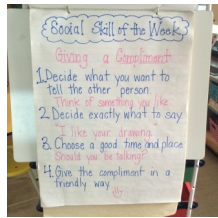 Social Skill of the Week
Giving a Compliment
1. Decide what you want to
tell the other person.
Think of something you like
2. Decide exactly what to say.
"I like your drawing."
3. Choose a good time and place
Should you be talking?
4. Give the compliment in a
friendly way.